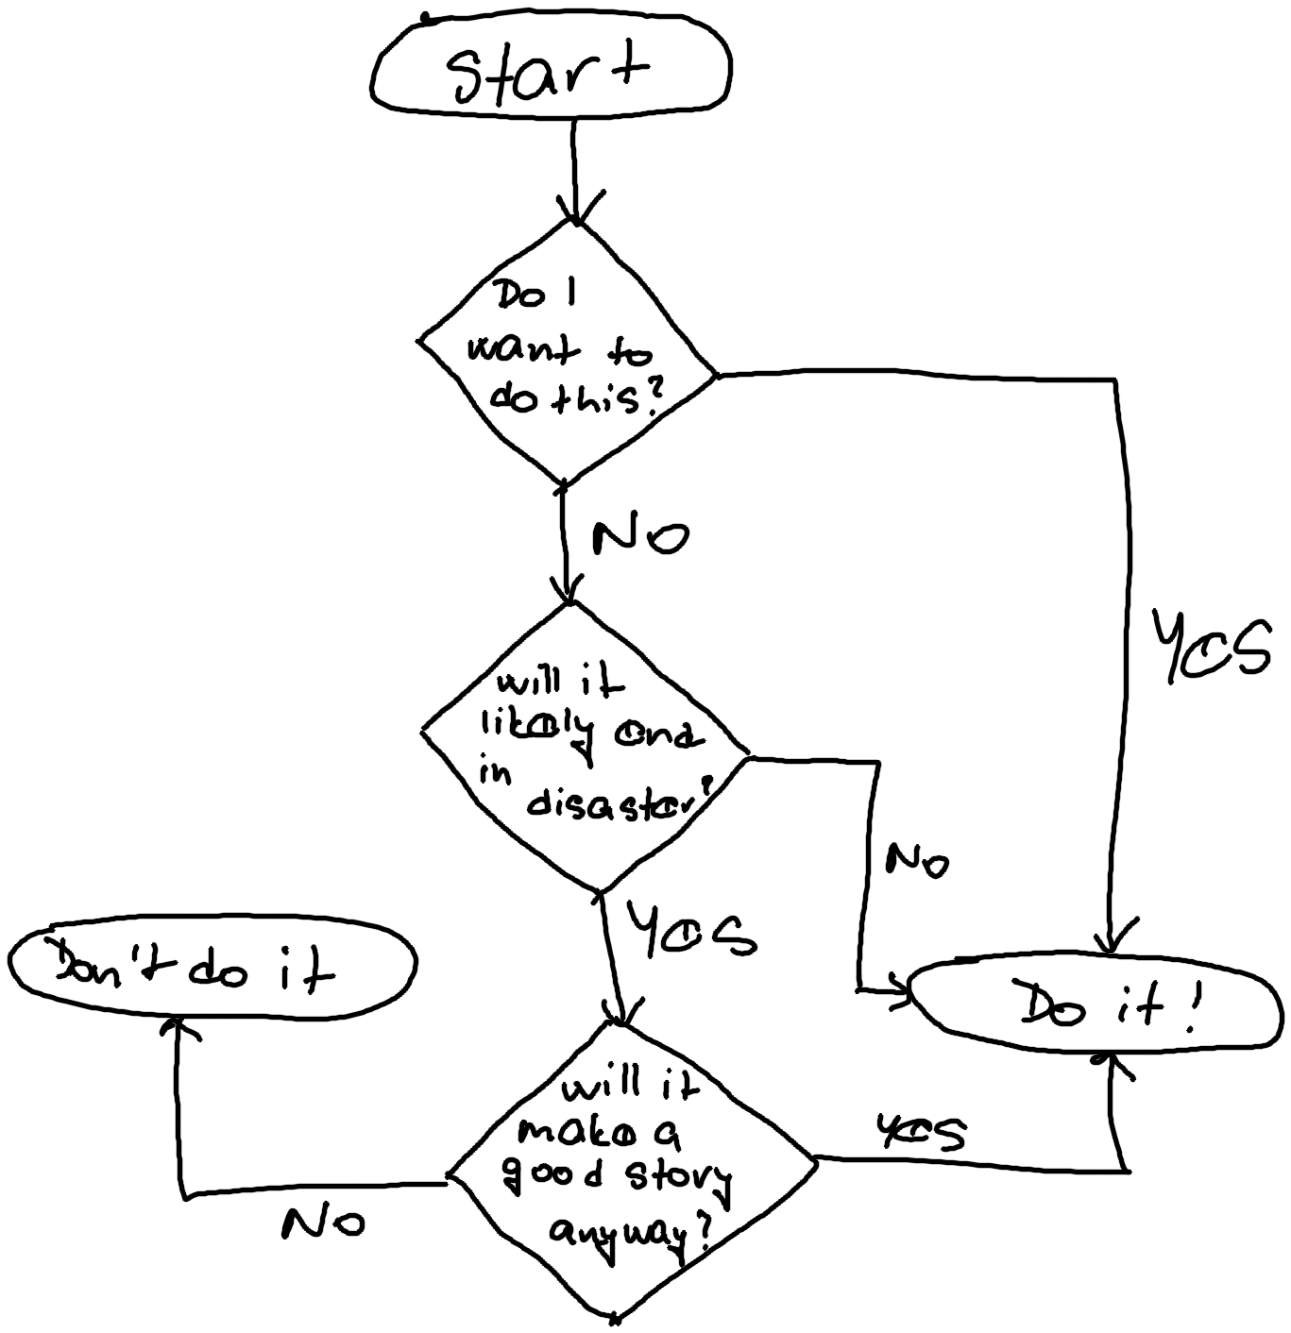 Start
Do I
want to
do this?
NO
YES
will it
likely end
in
disaster?
No
YES
Don't do it
Do it!
will it
make a
good story
anyway?
YES
NO